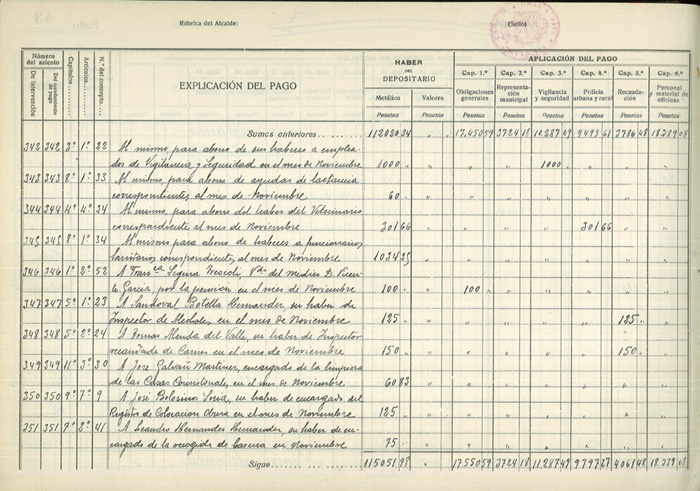 Rúbrica del Alcalde:
(Sello)
Número del asiento
De intervención
Del mandamiento de pago
Capítulos
Artículos
N.º del concepto
EXPLICACIÓN DEL PAGO
HABER DEL DEPOSITARIO
Metálico
Valores
Pesetas Pesetas
APLICACIÓN DEL PAGO
Cap. 1.º Cap. 2.º Cap. 3.º Cap. 4.º Cap. 5.º Cap. 6.º
Obligaciones generales
Representación municipal
Vigilancia y seguridad
Policía urbana y rural
Recaudación
Personal y material de oficinas
Pesetas Pesetas Pesetas Pesetas Pesetas Pesetas
Sumas anteriores 112020 24 17.450 59 3724 18 10.287 49 9495 61 3786 48 18.289 08
342 342 3º 1º 22 Al mismo, para abono de sus haberes a emplea-
dos de Vigilancia y Seguridad en el mes de Noviembre 1000 1000
343 343 8º 1º 33 Al mismo, para abono de ayudas de lactancia
correspondientes al mes de Noviembre 60
344 344 4º 4º 34 Al mismo, para abono del haber del Veterinario
correspondiente al mes de Noviembre 301 66 301 66
345 345 8º 1º 34 Al mismo para abono de haberes a funcionarios
sanitarios correspondientes, al mes de Noviembre 1034 25
346 346 1º 2º 52 A Segura Vda. del medico D.
Garcia, por la pension en el mes de Noviembre 100 100
347 347 5º 1º 23 A Sandoval Botella Hernandez, su haber de
Inspector de en el mes de Noviembre 125 125
348 348 5º 2º 24 A Tomas del Valle, su haber de Inspector
de Carnes en el mes de Noviembre 150 150
349 349 11º 3º 30 A Jose Galvañ Martinez, encargado de la limpieza
de las Casas Consistorial, en el mes de Noviembre 60 83
350 350 9º 7º 9 A José Soria, su haber de encargado del
Registro de Colocacion Obrera en el mes de Noviembre 125
351 351 7º 2º 41 A Leandro Hernandez Hernandez, su haber de en-
cargado de la recogida de basura en Noviembre 75
Sigue 115051 98 17550 59 3724 18 11.287 49 9797 27 4061 48 18.289 08